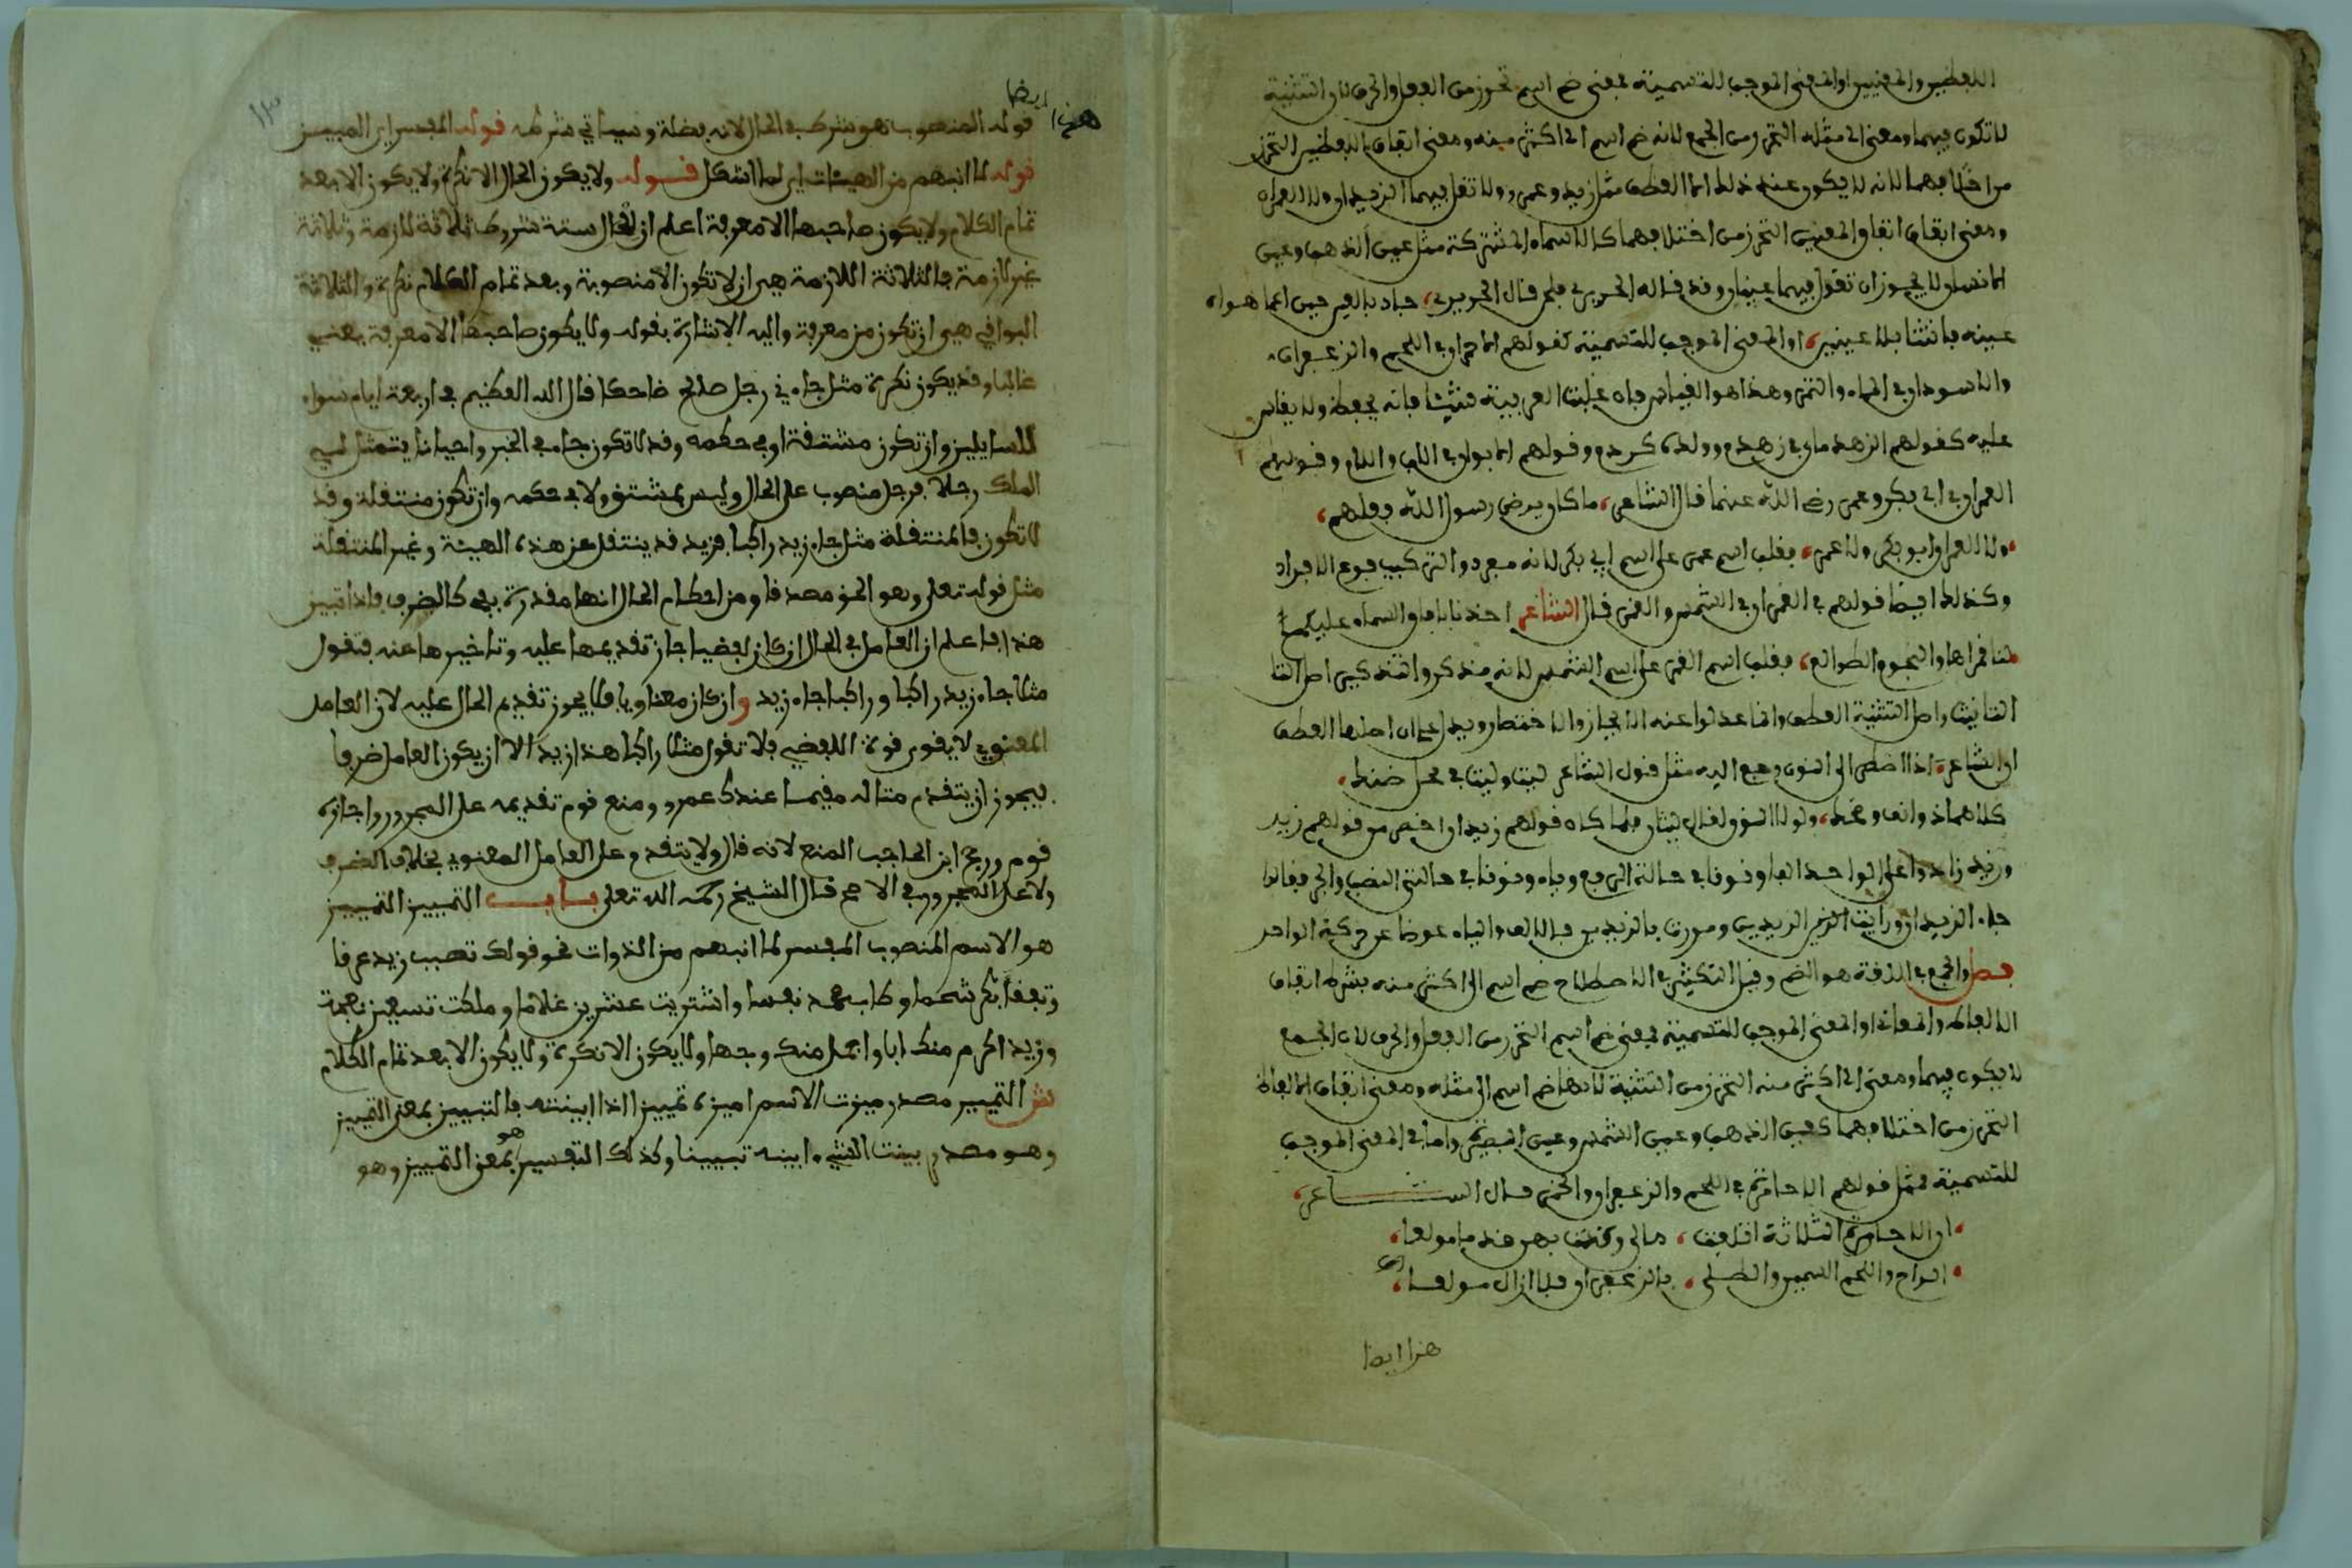 اللفظين والمعنيين او المعنى الموجب للتسمية فمعنى ضم اسم تحرز من الفعل والحرف لان التثنية
لا تكون فيهما ومعنى الى مثله التحرز من الجمع لانه ضم اسم الى اكثر منه ومعنى اتفاق اللفظين التحرز
من اختلافهما لانه لا يكون عند ذلك الا العطف مثل زيد وعمرو ولا تقل فيهما الزيدان ولا العمران
ومعنى اتفاق المعنيين التحرز من اختلافهما كالاسماء المشتركة مثل عين الذهب وعين
الماء فلا يجوز ان تقول فيهما عينان وقد قاله الحريري فلحن قال الحريري، جاد بالعين حين اعما هواه
عينه فانثنا بلا عينين، او المعنى الموجب للتسمية كقولهم الاحمران في اللحم والزعفران
والاسودان في الماء والتمر وهذا هو القياس فان غلبت العربية تثنيتا فانه يحفظ ولا يقاس
عليه كقولهم الزهدمان في زهدم وولده كردم وقولهم الابوان في الاب والام وقولهم
العمران في ابي بكر وعمر رضي الله عنهما قال الشاعر، ما كان يرضى رسول الله فعلهم،
ولا العمران ابو بكر ولا عمر، فغلب اسم عمر على اسم ابي بكر لانه مفرد والتركيب فرع الافراد
وكذلك ايضا قولهم في القمران في الشمس والقمر قال الشاعر اخذنا بافاق السماء عليكم
لنا قمراها والنجوم الطوالع، فغلب اسم القمر على اسم الشمس لانه مذكر والتذكير اصل
التانيث واصل التثنية العطف وانما عدلوا عنه الايجاز والاختصار ويدل على ان اصلها العطف
ان الشاعر اذا اضطر الى الوزن رجع اليه مثل قول الشاعر ليث وليث في محل ضنك،
كلاهما ذو انف ومحك، ولولا الوزن لقال ليثان فلما كان قولهم زيدان اخصر من قولهم زيد
وزيد زادوا على الواحد الفا ونونا في حالة الرفع وياء ونونا في حالتي النصب والجر فقالوا
جاء الزيدان ورايت الزيدين ومررت بالزيدين فالالف والياء عوضا عن حركة الواحد
فصل والجمع في اللغة هو الضم وقيل التكثير في الاصطلاح ضم اسم الى اكثر منه بشرط اتفاق
الالفاظ والمعاني او المعنى الموجب للتسمية فمعنى ضم اسم التحرز من الفعل والحرف لان الجمع
لا يكون فيهما ومعنى الى اكثر منه التحرز من التثنية لانها ضم اسم الى مثله ومعنى اتفاق الالفاظ
التحرز من اختلافهما كعين الذهب وعين الشمس وعين واما في المعنى الموجب
للتسمية فمثل قولهم الاحامرة في اللحم والزعفران والخمر قال الشاعر،
ان الاحامرة الثلاثة اتلفت، مالي وكنت بهن قدما مولعا،
الراح واللحم السمين واطلي، بالزعفران فلا ازال مولعا،
هذا ايضا
هذا ايضا
قوله المنصوب هو شرط في الحال لانه فضلة وسياتي شرطه قوله المفسر اي المبين
قوله لما انبهم من الهيئات اي لما اشكل قوله ولا يكون الحال الا نكرة ولا يكون الا بعد
تمام الكلام ولا يكون صاحبها الا معرفة اعلم ان للحال ستة شروط ثلاثة لازمة وثلاثة
غير لازمة فالثلاثة اللازمة هي ان لا تكون الا منصوبة وبعد تمام الكلام نكرة والثلاثة
البواقي هي ان تكون من معرفة واليه الاشارة بقوله ولا يكون صاحبها الا معرفة يعني
غالبا وقد يكون نكرة مثل جاءني رجل صالح ضاحكا قال الله العظيم في اربعة ايام سواء
للسايلين وان تكون مشتقة او في حكمه وقد لا تكون جاء في الخبر واحيانا يتمثل لي
الملك رجلا فرجل منصوب على الحال وليس بمشتق ولا في حكمه وان تكون منتقلة وقد
لا تكون فالمنتقلة مثل جاء زيد راكبا فزيد قد ينتقل عن هذه الهيئة وغير المنتقلة
مثل قوله تعلى وهو الحق مصدقا ومن احكام الحال انها مقدرة بفي كالضرف فاذا تبين
هذا فاعلم ان العامل في الحال ان كان لفضيا جاز تقديمها عليه وتاخيرها عنه فتقول
مثلا جاء زيد راكبا وراكبا جاء زيد وان كان معناويا فلا يجوز تقديم الحال عليه لان العامل
المعنوي لا يقوى قوة اللفضي فلا تقول مثلا راكبا هذا زيد الا ان يكون العامل ضرفا
فيجوز ان يتقدم مثاله مقيما عندك عمرو ومنع قوم تقديمه على المجرور واجازه
قوم ورجح ابن الحاجب المنع لانه قال ولا يتقدم على العامل المعنوي بخلاف الضرف
ولا على المجرور في الاصح قال الشيخ رحمه الله تعلى باب التمييز التمييز
هو الاسم المنصوب المفسر لما انبهم من الذوات نحو قولك تصبب زيد عرقا
وتفقا بكر شحما وطاب محمد نفسا واشتريت عشرين غلاما وملكت تسعين نعجة
وزيد اكرم منك ابا واجمل منك وجها ولا يكون الا نكرة ولا يكون الا بعد تمام الكلام
ش التمييز مصدر ميزت الاسم اميزه تمييزا اذا ابينته فالتبيين بمعنى التمييز
وهو مصدر بينت الشيء ابينه تبيينا وكذلك التفسير هو بمعنى التمييز وهو